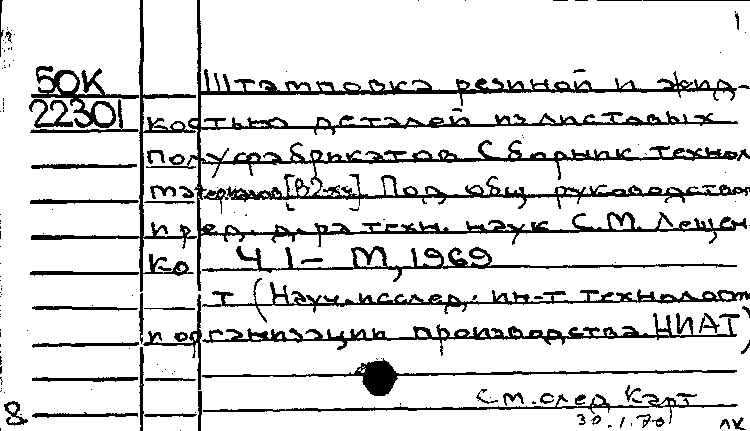 1
50К Штамповка резиной и жид-
22301 костью деталей из листовых
полуфабрикатов Сборник технол
материалов [В 2-хч] Под общ руководством
и ред. д-ра техн. наук С.М. Лещен
ко Ч I – М, 1969
т (Науч.исслед. ин-т технологи
и организации производства НИАТ)
См.след Карт
30.1.70
8 ЛК